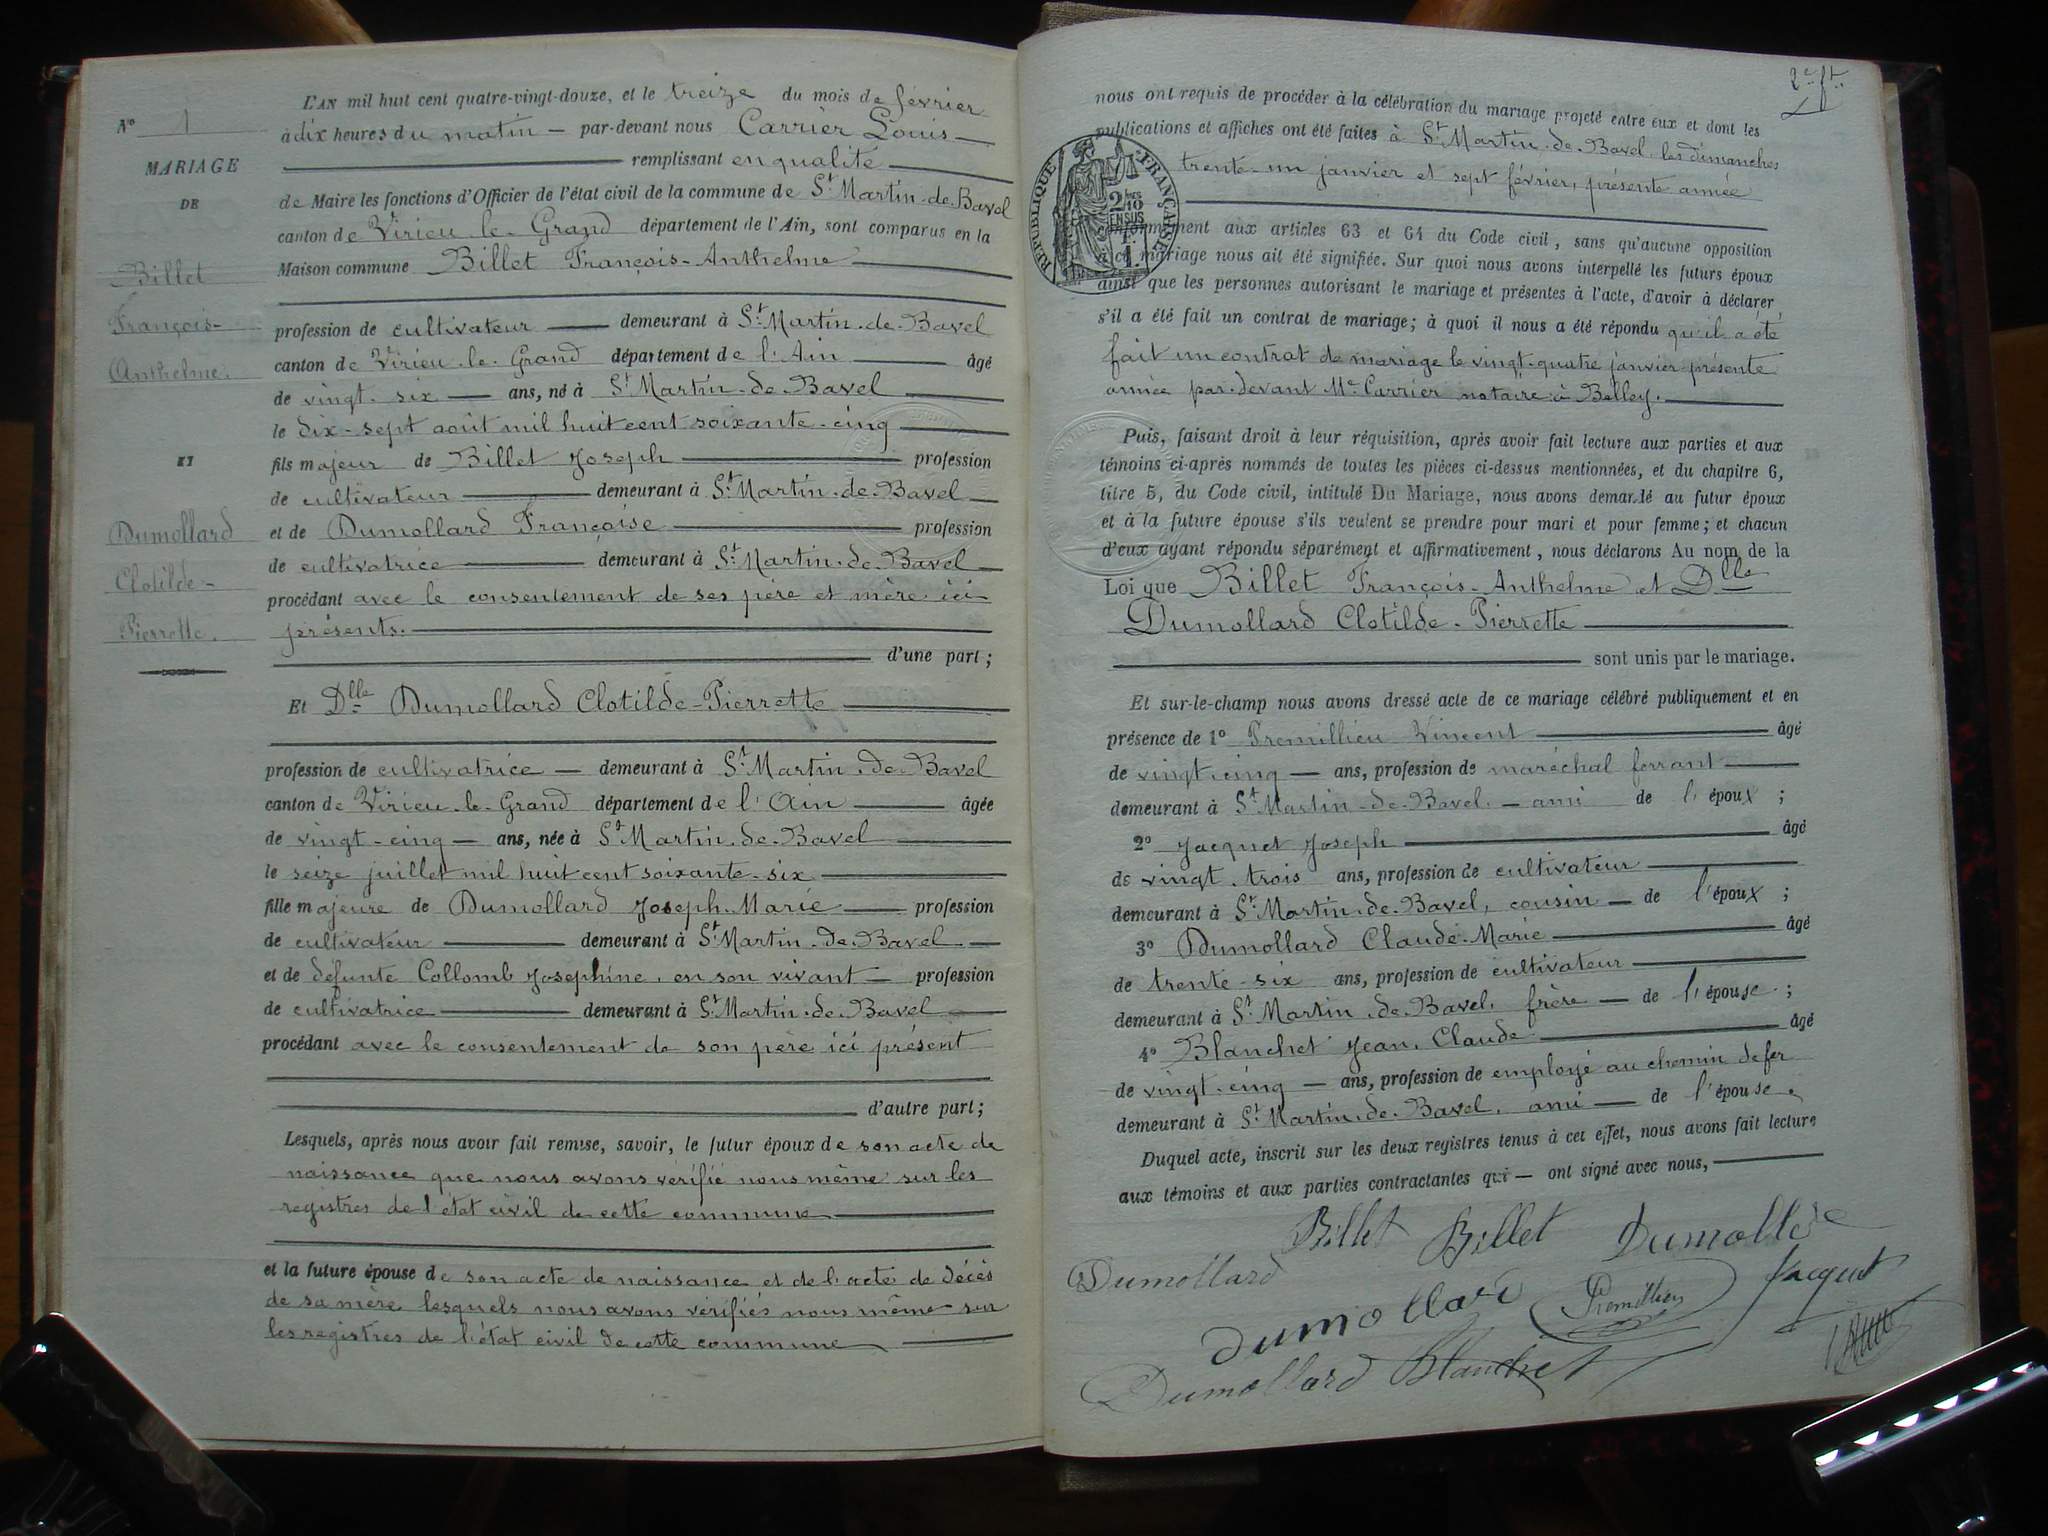 L'AN mil huit cent quatre-vingt-douze, et le treize du mois de février
N° 1
à dix heures du matin — par-devant nous Carrier Louis —
MARIAGE
remplissant en qualité
DE
de Maire les fonctions d'Officier de l'état civil de la commune de St Martin-de-Bavel
canton de Virieu-le-Grand département de l'Ain, sont comparus en la
Billet
Maison commune Billet François-Anthelme
François-
profession de cultivateur — demeurant à St Martin-de-Bavel
Anthelme.
canton de Virieu-le-Grand département de l'Ain — âgé
de vingt-six — ans, né à St Martin-de-Bavel
le dix-sept août mil huit cent soixante-cinq
ET
fils majeur de Billet Joseph — profession
de cultivateur — demeurant à St Martin-de-Bavel
Dumollard
et de Dumollard Françoise — profession
de cultivatrice — demeurant à St Martin-de-Bavel
Clotilde-
procédant avec le consentement de ses père et mère ici
Pierrette.
présents.
d'une part ;
Et Dlle Dumollard Clotilde-Pierrette
profession de cultivatrice — demeurant à St Martin-de-Bavel
canton de Virieu-le-Grand département de l'Ain — âgée
de vingt-cinq — ans, née à St Martin-de-Bavel
le seize juillet mil huit cent soixante-six
fille majeure de Dumollard Joseph-Marie — profession
de cultivateur — demeurant à St Martin-de-Bavel —
et de défunte Collomb Josephine, en son vivant — profession
de cultivatrice — demeurant à St Martin-de-Bavel
procédant avec le consentement de son père ici présent
d'autre part ;
Lesquels, après nous avoir fait remise, savoir, le futur époux de son acte de
naissance que nous avons vérifié nous même sur les
registres de l'état civil de cette commune
et la future épouse de son acte de naissance et de l'acte de décès
de sa mère lesquels nous avons vérifiés nous même sur
les registres de l'état civil de cette commune
nous ont requis de procéder à la célébration du mariage projeté entre eux et dont les
publications et affiches ont été faites à St Martin-de-Bavel, les dimanches
trente-un janvier et sept février, présente année
RÉPUBLIQUE FRANÇAISE
2/10 EN SUS
1 F.
conformément aux articles 63 et 64 du Code civil, sans qu'aucune opposition
à ce mariage nous ait été signifiée. Sur quoi nous avons interpellé les futurs époux
ainsi que les personnes autorisant le mariage et présentes à l'acte, d'avoir à déclarer
s'il a été fait un contrat de mariage ; à quoi il nous a été répondu qu'il a été
fait un contrat de mariage le vingt-quatre janvier présente
année par-devant Me Carrier notaire à Belley.
Puis, faisant droit à leur réquisition, après avoir fait lecture aux parties et aux
témoins ci-après nommés de toutes les pièces ci-dessus mentionnées, et du chapitre 6,
titre 5, du Code civil, intitulé Du Mariage, nous avons demandé au futur époux
et à la future épouse s'ils veulent se prendre pour mari et pour femme ; et chacun
d'eux ayant répondu séparément et affirmativement, nous déclarons Au nom de la
Loi que Billet François-Anthelme et Dlle
Dumollard Clotilde-Pierrette
sont unis par le mariage.
Et sur-le-champ nous avons dressé acte de ce mariage célébré publiquement et en
présence de 1° Premillieu Vincent — âgé
de vingt-cinq — ans, profession de maréchal ferrant
demeurant à St Martin-de-Bavel, — ami de l'époux ;
2° Jacquet Joseph — âgé
de vingt-trois ans, profession de cultivateur
demeurant à St Martin-de-Bavel, cousin — de l'époux ;
3° Dumollard Claude-Marie — âgé
de trente-six ans, profession de cultivateur
demeurant à St Martin-de-Bavel, frère — de l'épouse ;
4° Blanchet Jean-Claude — âgé
de vingt-cinq — ans, profession de employé au chemin de fer
demeurant à St Martin-de-Bavel, ami — de l'épouse.
Duquel acte, inscrit sur les deux registres tenus à cet effet, nous avons fait lecture
aux témoins et aux parties contractantes qui — ont signé avec nous,
Billet Billet Dumollard
Dumollard
Dumollard Premillieu Jacquet
Dumollard Blanchet